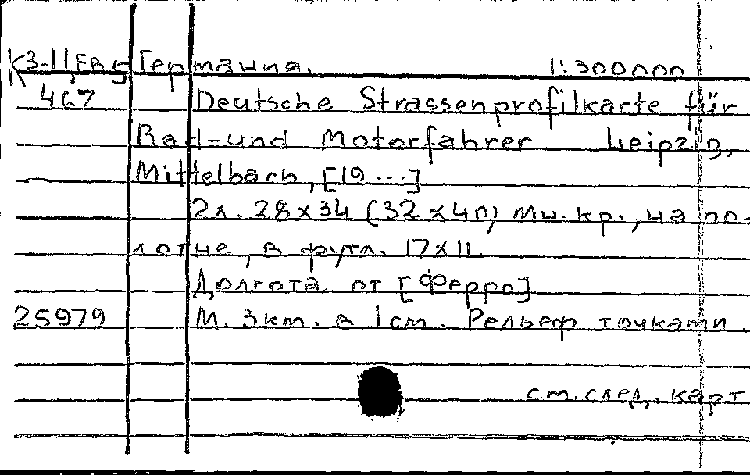 К3-11 Ев5 Германия. 1:300000
467 Deutsche Strassenprofilkarte für
Rad-und Motorfahrer Leipzig,
Mittelbach, [19 ...]
2л. 28x34 (32x40) мн.кр., на по-
лотне, в футл. 17x11.
Долгота от [Ферро]
25979 М. 3км. в 1см. Рельеф точками.
см. след. карт